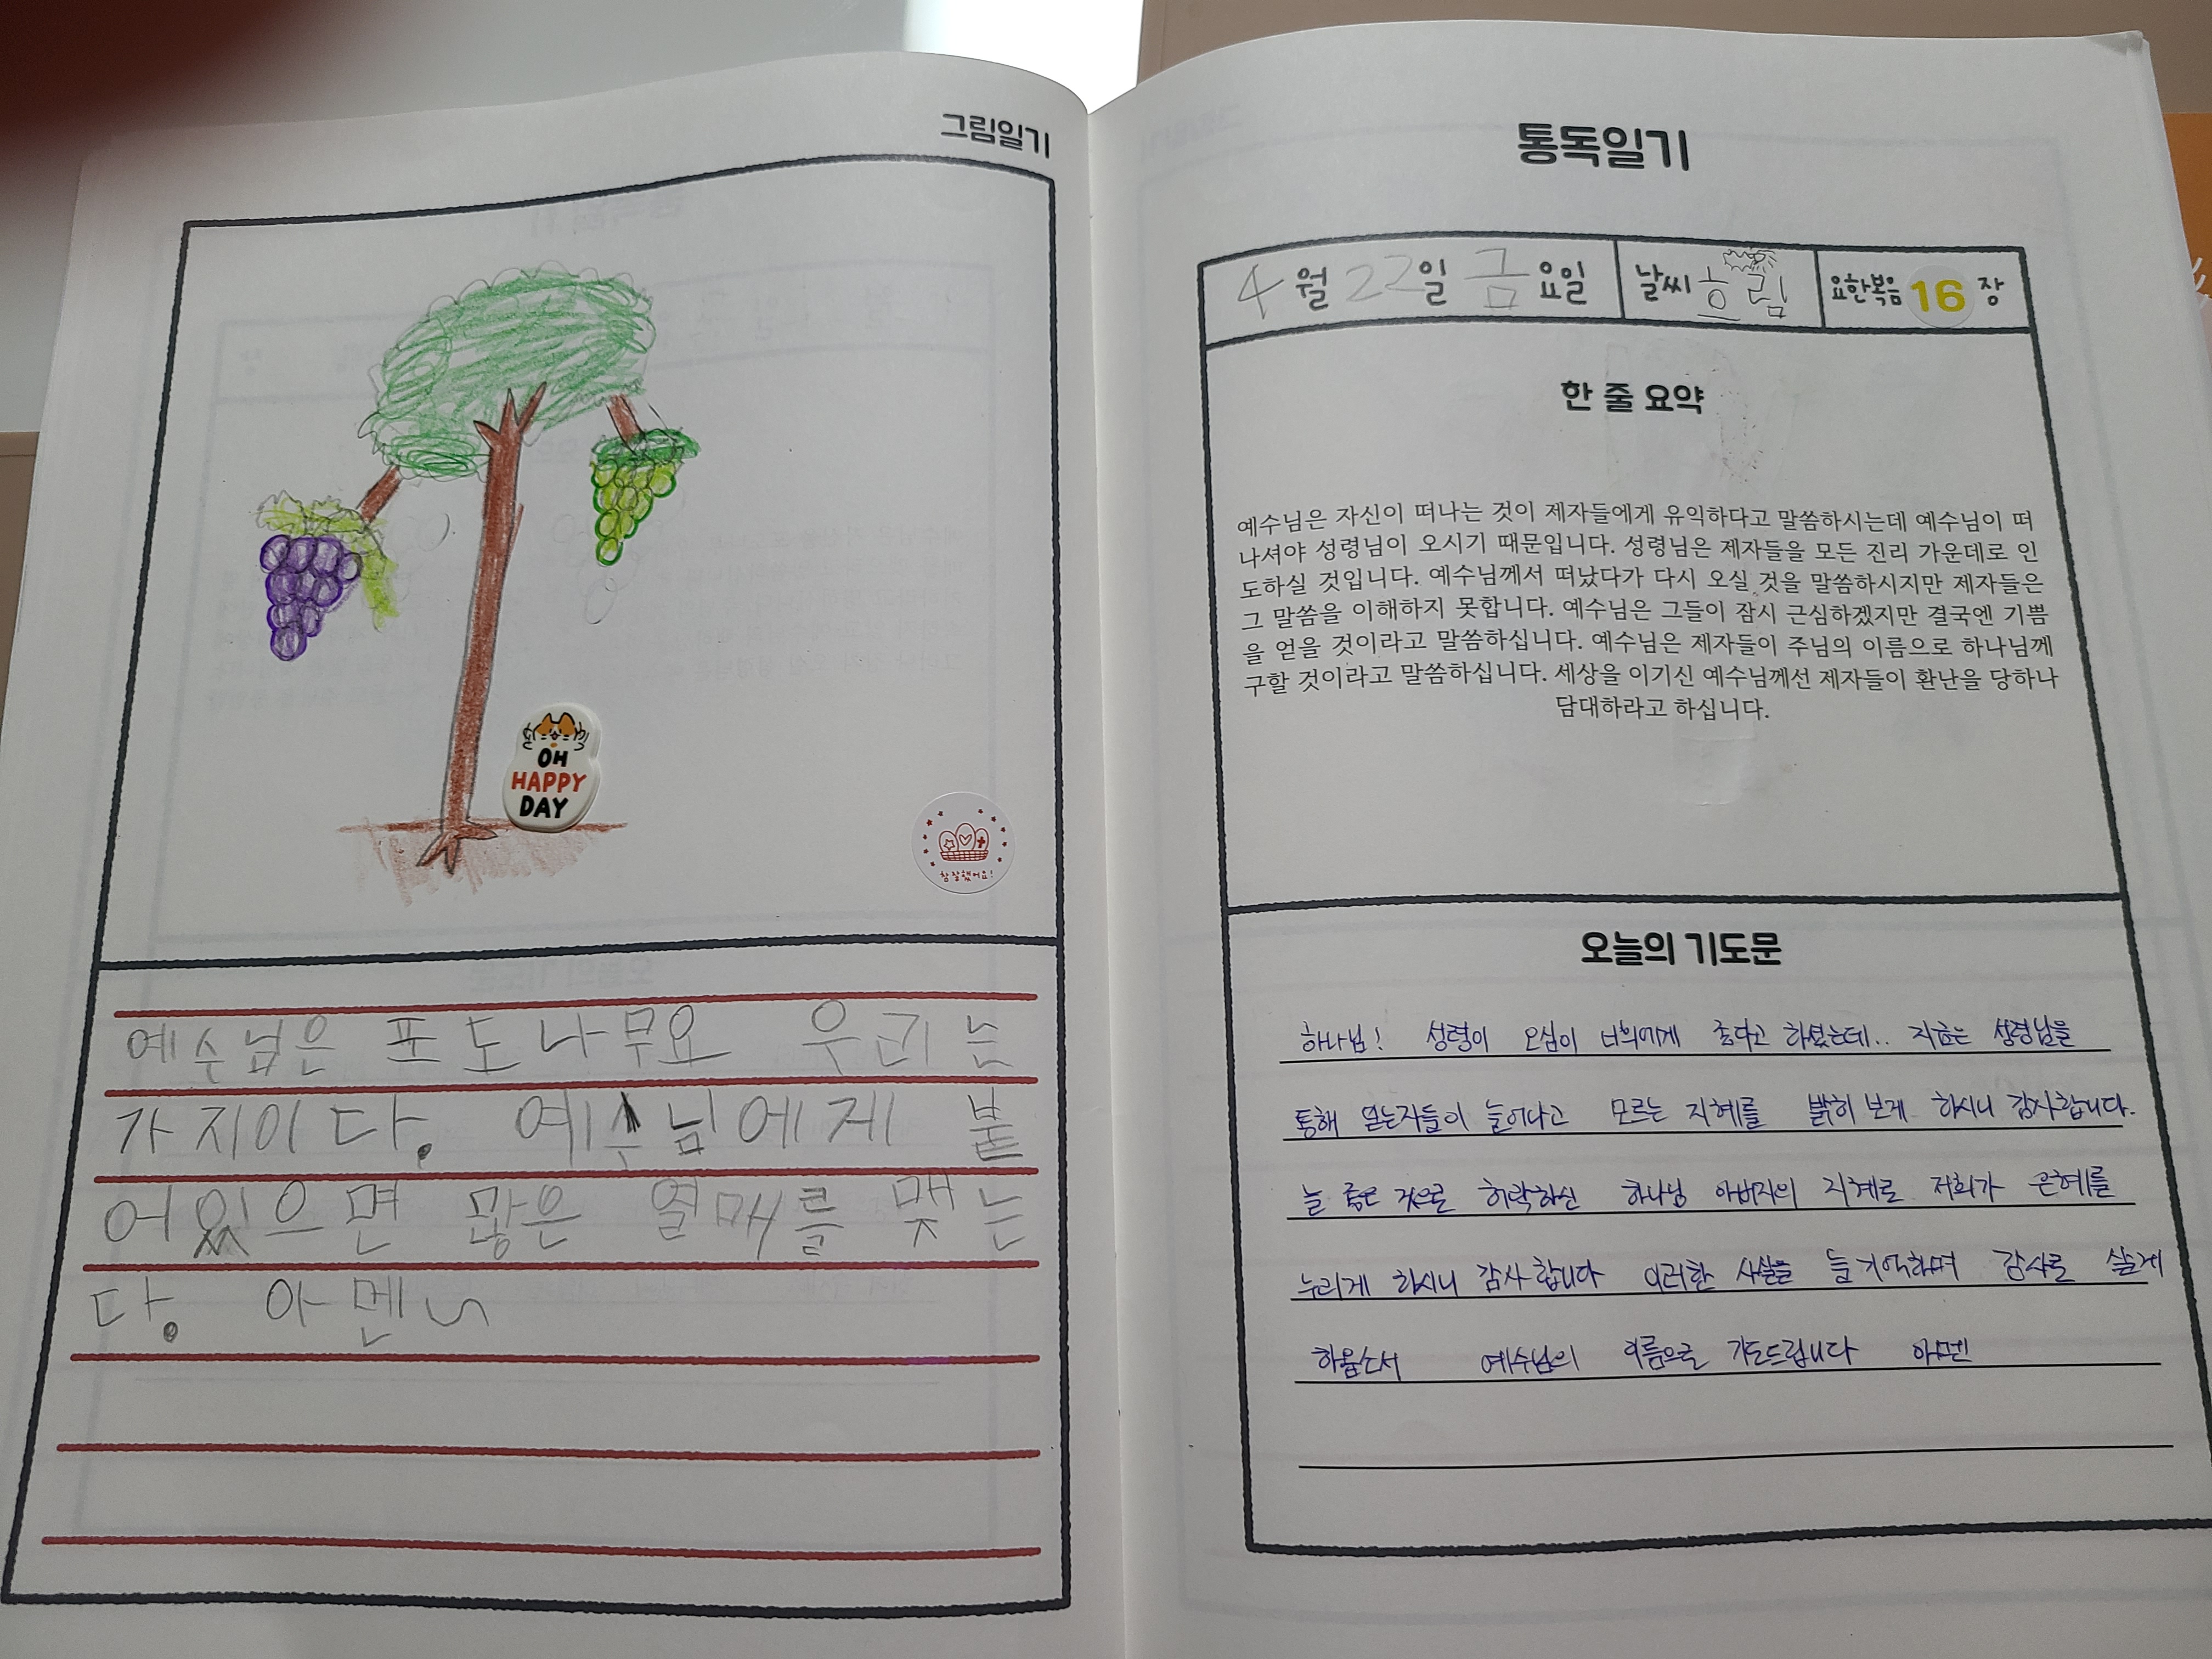 그림일기
OH
HAPPY
DAY
참 잘했어요!
예수님은 포도나무요 우리는
가지이다. 예수님에게 붙
어있으면 많은 열매를 맺는
다. 아멘~
통독일기
4월 22일 금요일 날씨 흐림 요한복음 16 장
한 줄 요약
예수님은 자신이 떠나는 것이 제자들에게 유익하다고 말씀하시는데 예수님이 떠
나셔야 성령님이 오시기 때문입니다. 성령님은 제자들을 모든 진리 가운데로 인
도하실 것입니다. 예수님께서 떠났다가 다시 오실 것을 말씀하시지만 제자들은
그 말씀을 이해하지 못합니다. 예수님은 그들이 잠시 근심하겠지만 결국엔 기쁨
을 얻을 것이라고 말씀하십니다. 예수님은 제자들이 주님의 이름으로 하나님께
구할 것이라고 말씀하십니다. 세상을 이기신 예수님께선 제자들이 환난을 당하나
담대하라고 하십니다.
오늘의 기도문
하나님! 성령이 오심이 너희에게 좋다고 하셨는데.. 지금은 성령님을
통해 믿는자들이 늘어나고 모르는 지혜를 밝히 보게 하시니 감사합니다.
늘 좋은 것으로 허락하신 하나님 아버지의 지혜로 저희가 은혜를
누리게 하시니 감사 합니다 이러한 사실을 늘 기억하며 감사로 살게
하옵소서 예수님의 이름으로 기도드립니다 아멘